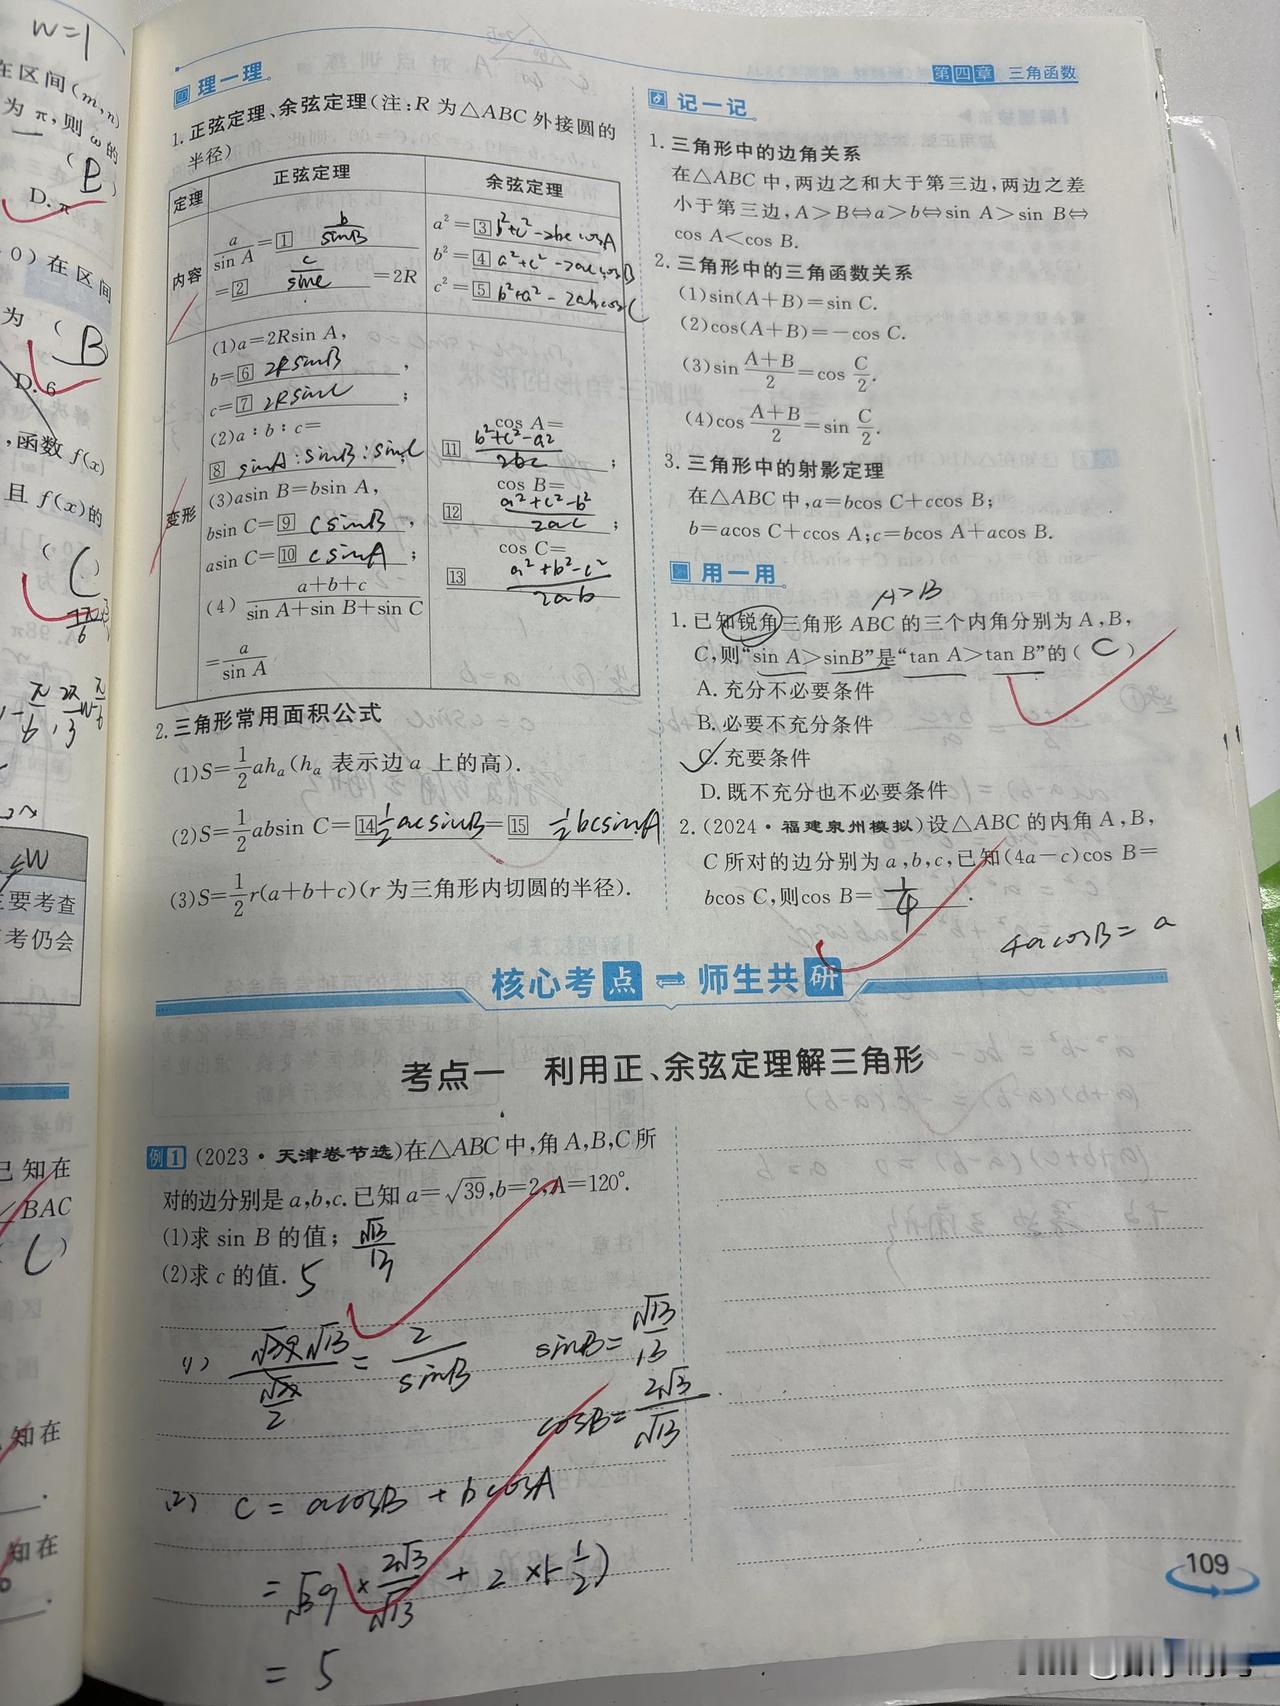 W=1
在区间(m,n)
为π,则ω的
(B)
D.π
0)在区间
为(
B
D.6
,函数f(x)
且f(x)的
(C)
要考查
考仍会
已知在
∠BAC
(C)
知在
知在
第四章 三角函数
理一理
1.正弦定理、余弦定理(注:R为△ABC外接圆的
半径)
定理 正弦定理 余弦定理
内容
a/sin A=1 b/sinB
=2 c/sinC =2R
a²=3 b²+c²-2bc cosA
b²=4 a²+c²-2ac cosB
c²=5 b²+a²-2ab cosC
变形
(1)a=2Rsin A,
b=6 2RsinB,
c=7 2RsinC;
(2)a:b:c=
8 sinA:sinB:sinC;
(3)asin B=bsin A,
bsin C=9 csinB,
asin C=10 csinA;
(4) (a+b+c)/(sin A+sin B+sin C)
=a/sin A
cos A=
11 (b²+c²-a²)/2bc;
cos B=
12 (a²+c²-b²)/2ac;
cos C=
13 (a²+b²-c²)/2ab
2.三角形常用面积公式
(1)S=1/2ahₐ(hₐ表示边a上的高).
(2)S=1/2absin C=14 1/2acsinB=15 1/2bcsinA
(3)S=1/2r(a+b+c)(r为三角形内切圆的半径).
记一记
1.三角形中的边角关系
在△ABC中,两边之和大于第三边,两边之差
小于第三边,A>B⇔a>b⇔sin A>sin B⇔
cos A<cos B.
2.三角形中的三角函数关系
(1)sin(A+B)=sin C.
(2)cos(A+B)=-cos C.
(3)sin (A+B)/2=cos C/2.
(4)cos (A+B)/2=sin C/2.
3.三角形中的射影定理
在△ABC中,a=bcos C+ccos B;
b=acos C+ccos A;c=bcos A+acos B.
用一用
A>B
1.已知锐角三角形ABC的三个内角分别为A,B,
C,则“sin A>sinB”是“tan A>tan B”的(C)
A.充分不必要条件
B.必要不充分条件
C.充要条件
D.既不充分也不必要条件
2.(2024·福建泉州模拟)设△ABC的内角A,B,
C所对的边分别为a,b,c,已知(4a-c)cos B=
bcos C,则cos B=1/4.
4acosB=a
核心考点⇌师生共研
考点一 利用正、余弦定理解三角形
例1 (2023·天津卷节选)在△ABC中,角A,B,C所
对的边分别是a,b,c.已知a=√39,b=2,A=120°.
(1)求sin B的值; √13/13
(2)求c的值. 5
(1) = 2/sinB
sinB=√13/13
cosB=2√3/√13
(2) c=acosB+bcosA
=√39×2√3/√13+2×(-1/2)
=5
109